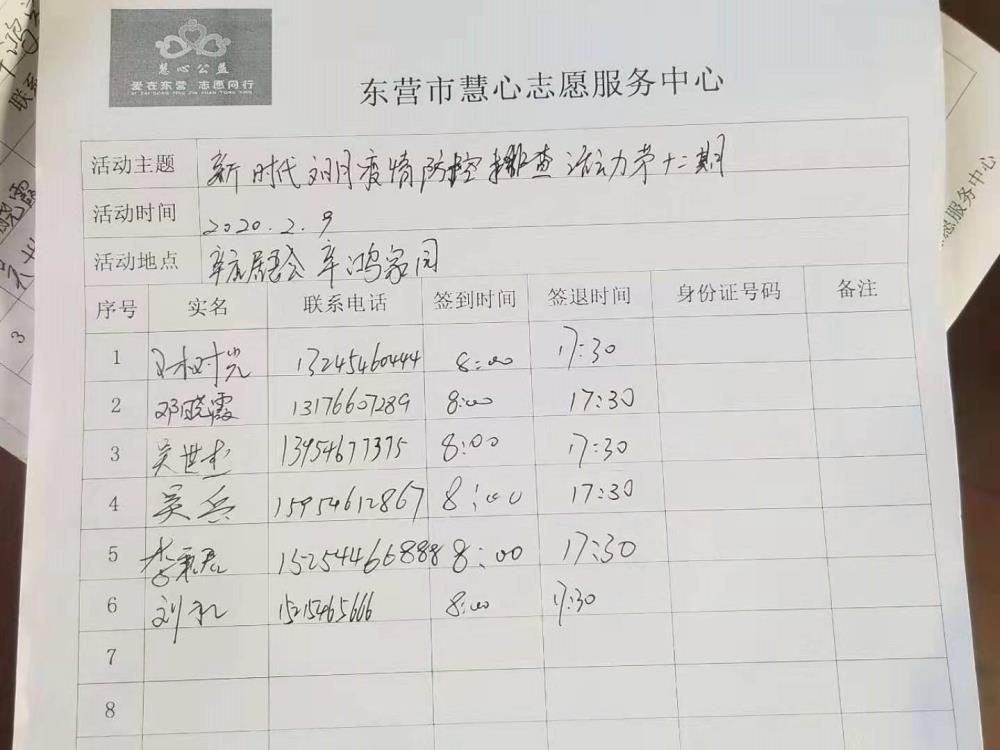 慧心公益
爱在东营 志愿同行
AI ZAI DONG YING ZHI YUAN TONG XING
东营市慧心志愿服务中心
活动主题 新时代文明疫情防控排查活动第十二期
活动时间 2020.2.9
活动地点 辛店居委会 辛鸿家园
序号 实名 联系电话 签到时间 签退时间 身份证号码 备注
1 时光 13245460444 8:00 17:30
2 邓晓霞 13176607289 8:00 17:30
3 吴世杰 13954677375 8:00 17:30
4 吴兵 15954612867 8:00 17:30
5 李 15254466888 8:00 17:30
6 刘礼 15215465666 8:00 17:30
7
8
联系
3
愿服务中心